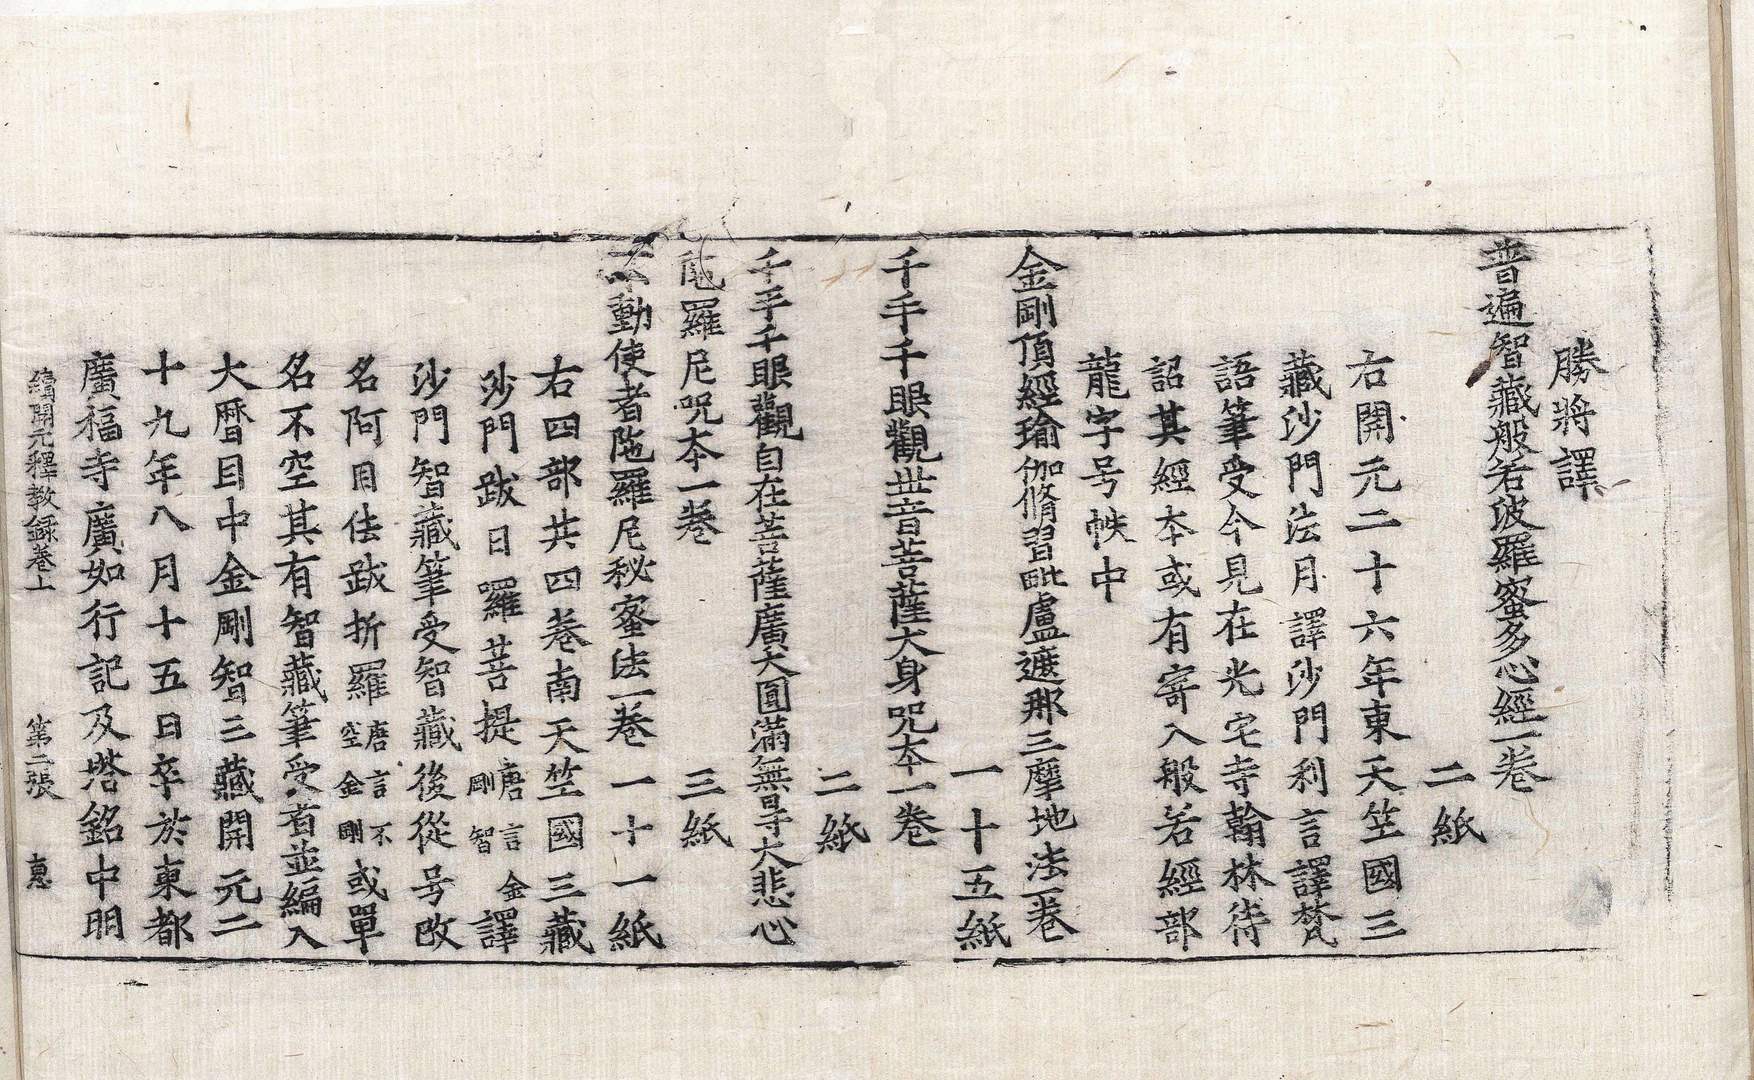 勝將譯
普遍智藏般若波羅蜜多心經一卷
二紙
右開元二十六年東天竺國三
藏沙門法月譯沙門利言譯梵
語筆受今見在光宅寺翰林待
詔其經本或有寄入般若經部
龍字号帙中
金剛頂經瑜伽脩習毗盧遮那三摩地法一卷
一十五紙
千手千眼觀世音菩薩大身呪本一卷
二紙
千手千眼觀自在菩薩廣大圓滿無㝵大悲心
陁羅尼呪本一卷
三紙
不動使者陁羅尼秘蜜法一卷 一十一紙
右四部共四卷南天竺國三藏
沙門跋日羅菩提唐言金剛智譯
沙門智藏筆受智藏後從号改
名阿目佉跋折羅唐言不空金剛或單
名不空其有智藏筆受者並編入
大曆目中金剛智三藏開元二
十九年八月十五日卒於東都
廣福寺廣如行記及塔銘中明
續開元釋教錄卷上 第二張 惠